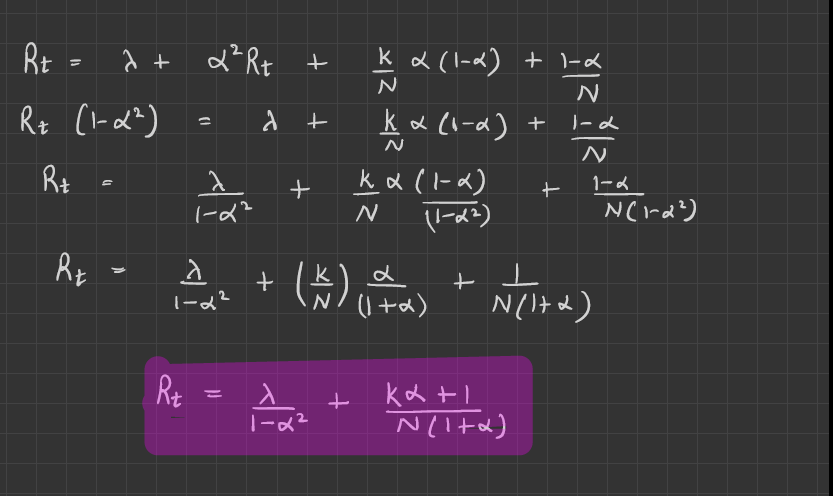 Rt = λ + α²Rt + k/N α(1-α) + 1-α/N
Rt (1-α²) = λ + k/N α(1-α) + 1-α/N
Rt = λ/1-α² + k/N α(1-α)/(1-α²) + 1-α/N(1-α²)
Rt = λ/1-α² + (k/N) α/(1+α) + 1/N(1+α)
Rt = λ/1-α² + kα+1/N(1+α)